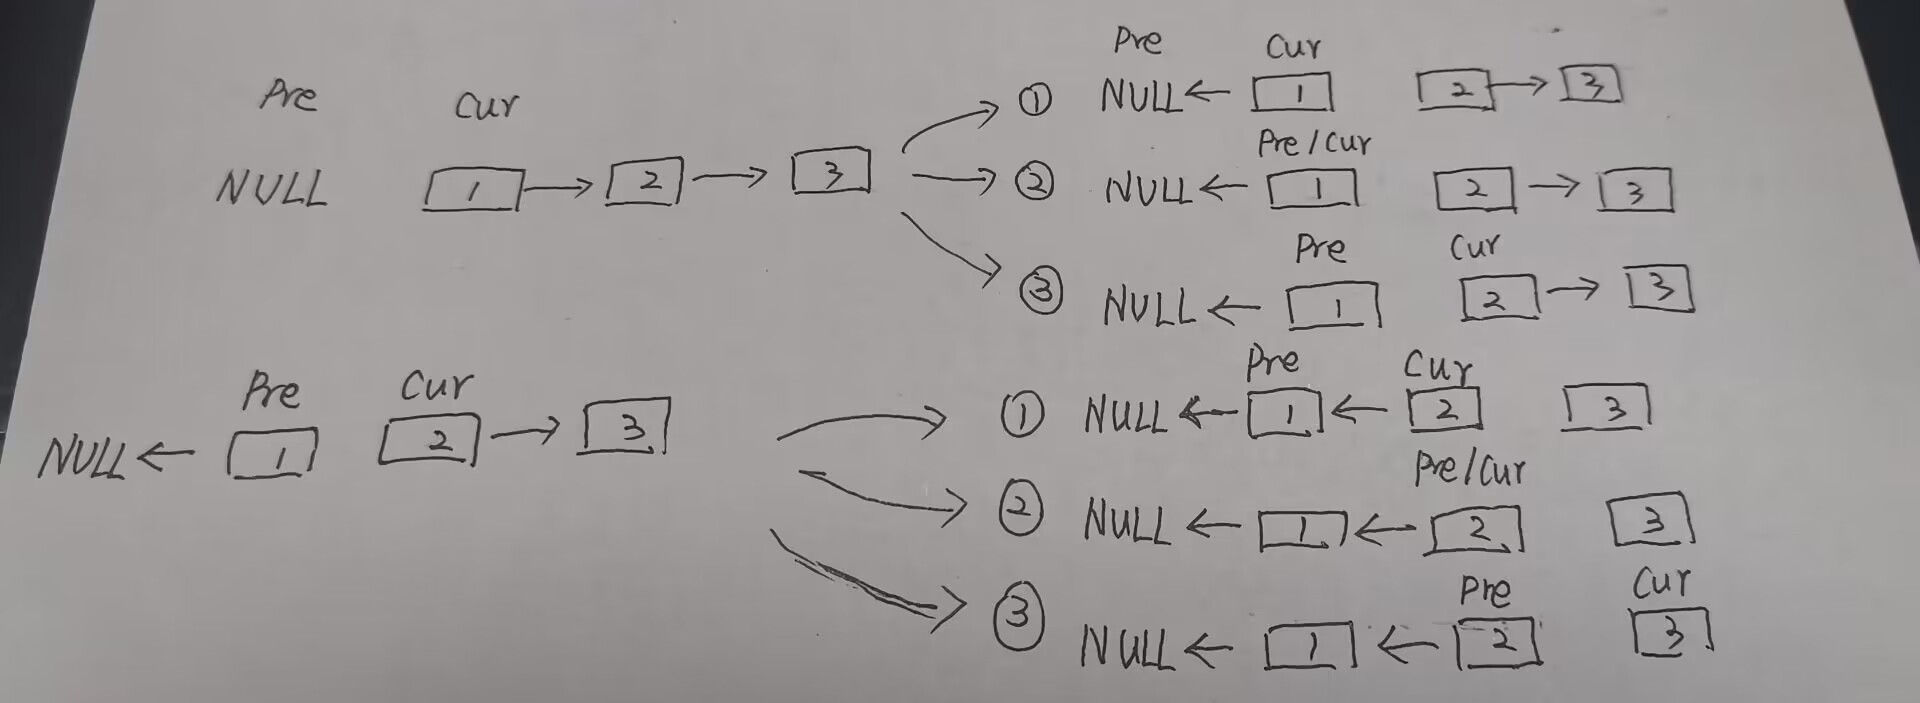 Pre Cur
NULL 1 → 2 → 3
① Pre Cur
NULL ← 1 2 → 3
② Pre/Cur
NULL ← 1 2 → 3
③ Pre Cur
NULL ← 1 2 → 3
Pre Cur
NULL ← 1 2 → 3
① Pre Cur
NULL ← 1 ← 2 3
② Pre/Cur
NULL ← 1 ← 2 3
③ Pre Cur
NULL ← 1 ← 2 3